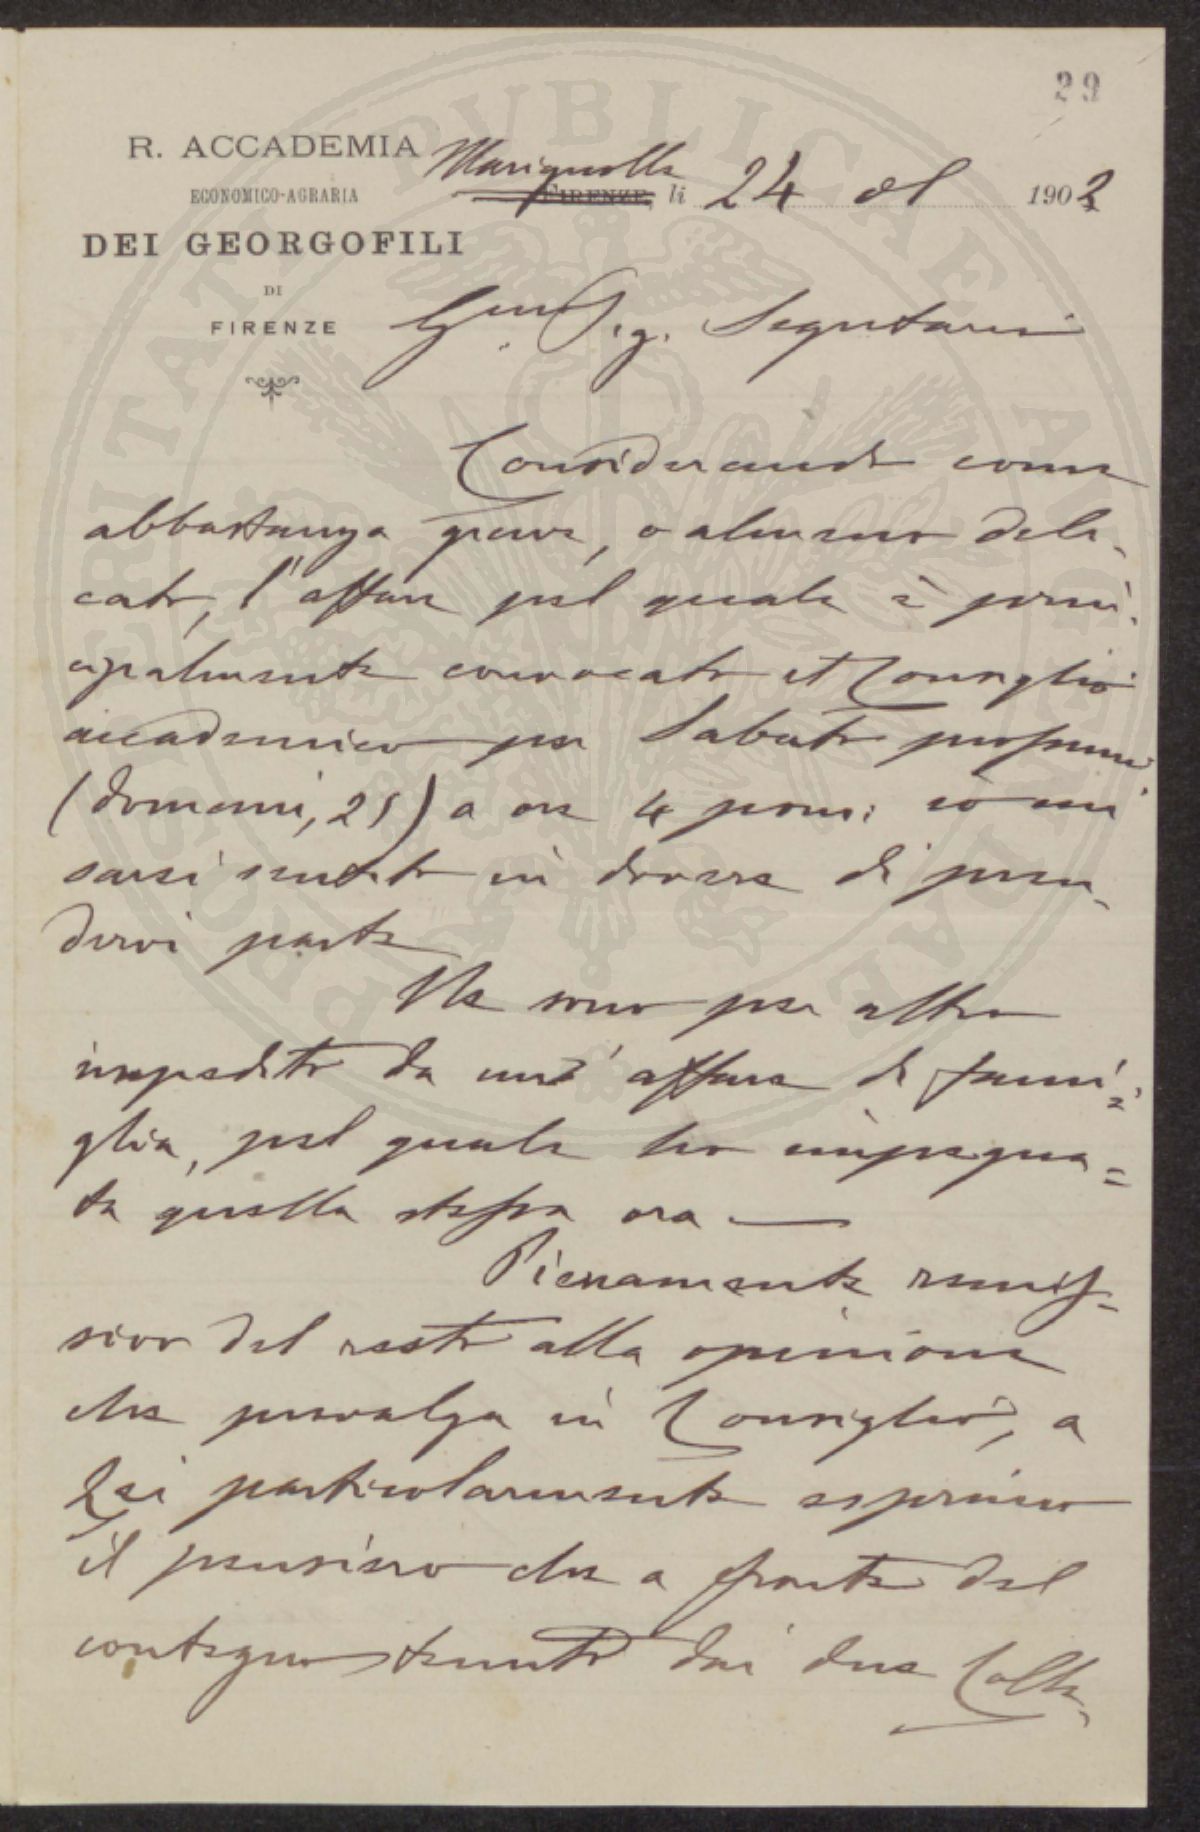 29
R. ACCADEMIA
ECONOMICO-AGRARIA
DEI GEORGOFILI
DI
FIRENZE
Marignolle
FIRENZE, li 24 1903
Sig. Segretario
Considerando come
abbastanza grave, o almeno deli-
cato, l'affare pel quale è prin-
cipalmente convocato il Consiglio
accademico per Sabato prossimo
(domani, 25) a ore 4 pom: io mi
sarei sentito in dovere di pren-
dervi parte
Ne sono per altro
impedito da un' affare di fami=
glia, pel quale ho impegna=
ta quella stessa ora —
Pienamente remis-
sivo del resto alla opinione
che prevalga in Consiglio, a
Lei particolarmente esprimo
il pensiero che a fronte del
contegno tenuto dai due Colle-
PROSPERITATI PVBLICAE AVGENDAE